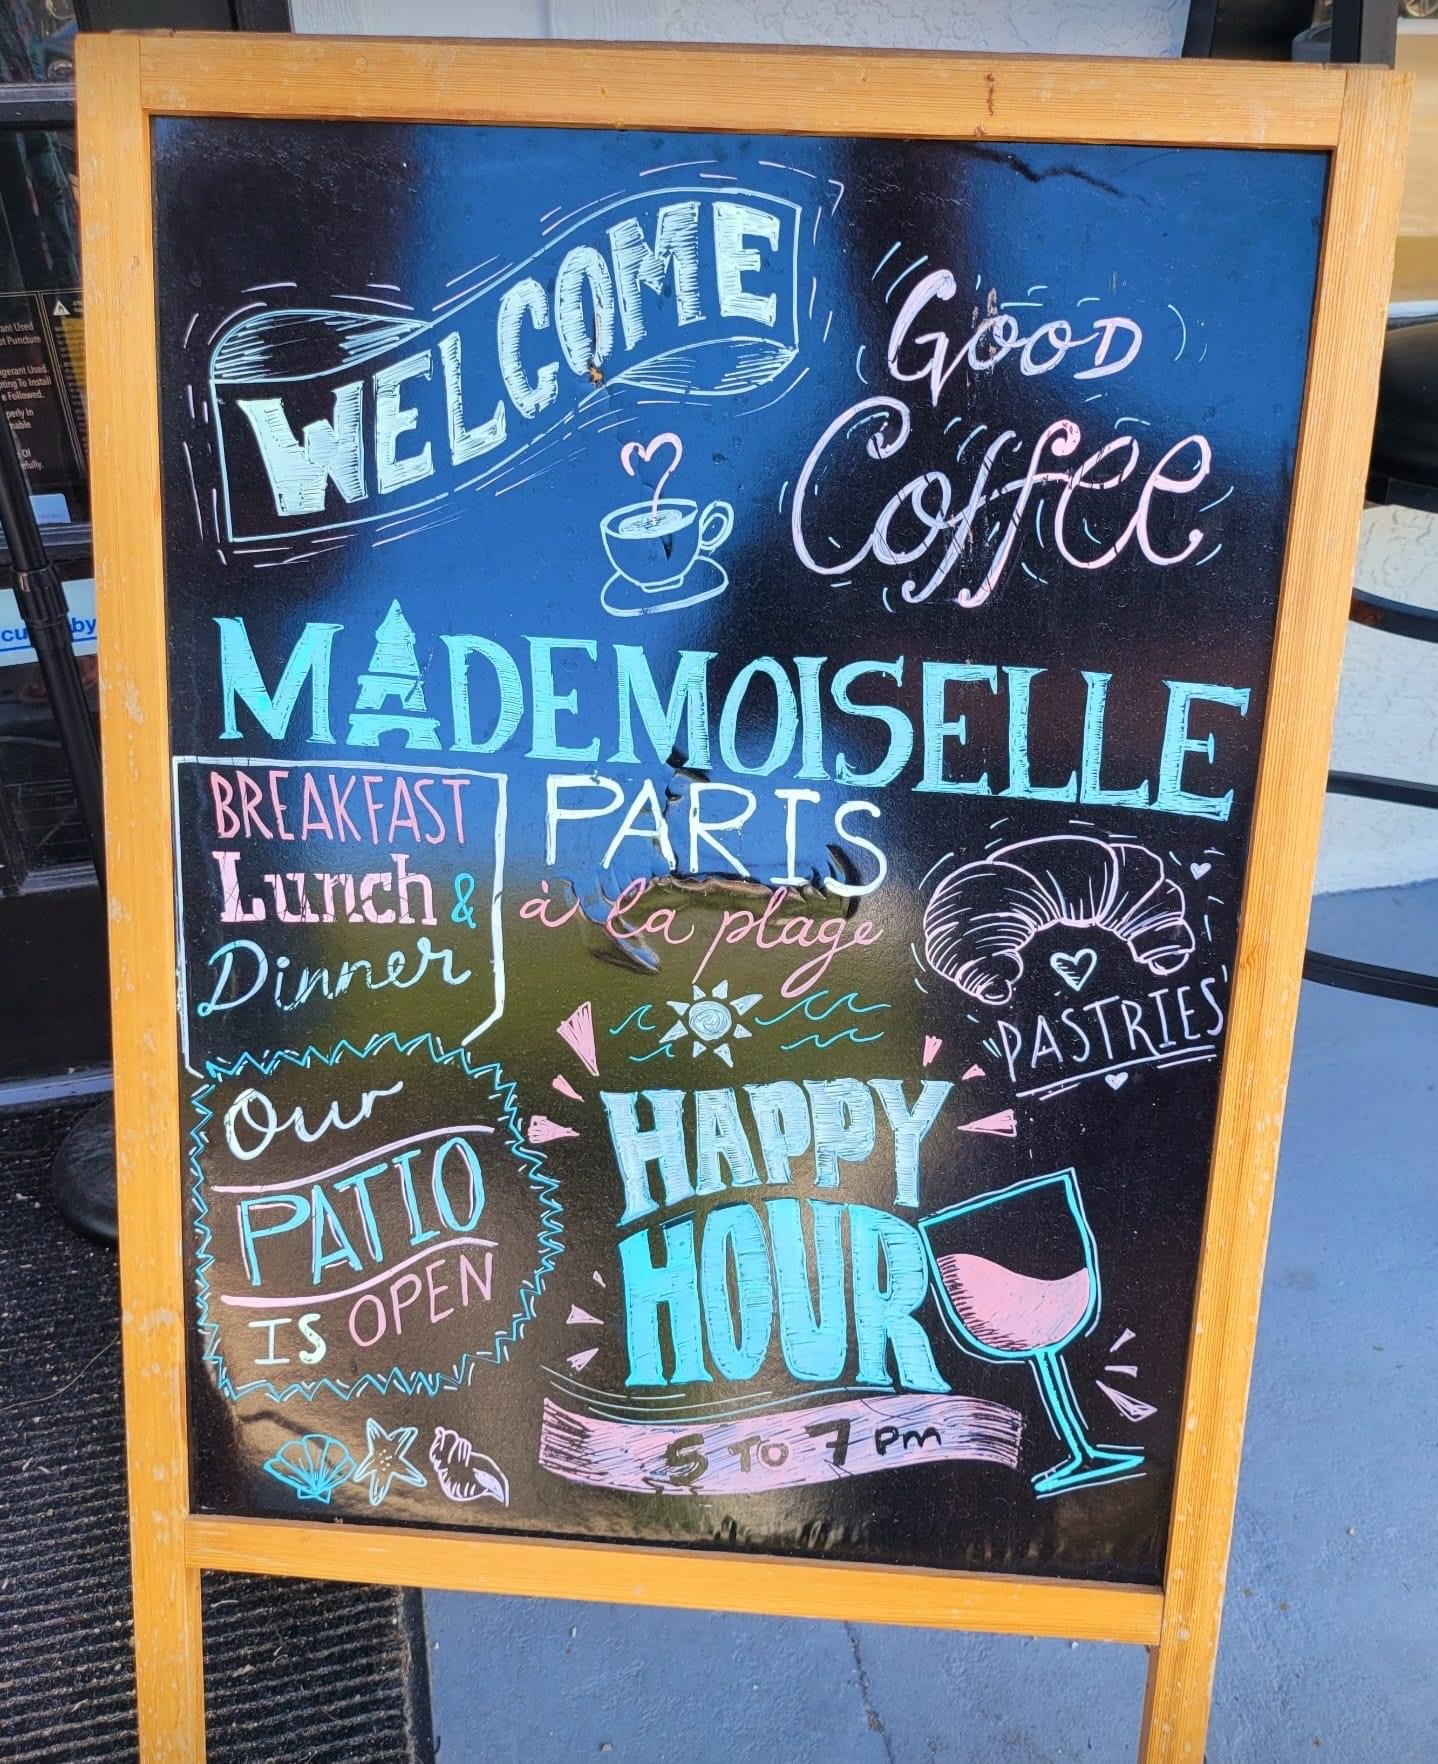 WELCOME
GOOD
Coffee
MADEMOISELLE
BREAKFAST
Lunch &
Dinner
PARIS
à la plage
PASTRIES
Our
PATIO
IS OPEN
HAPPY
HOUR
5 TO 7 PM